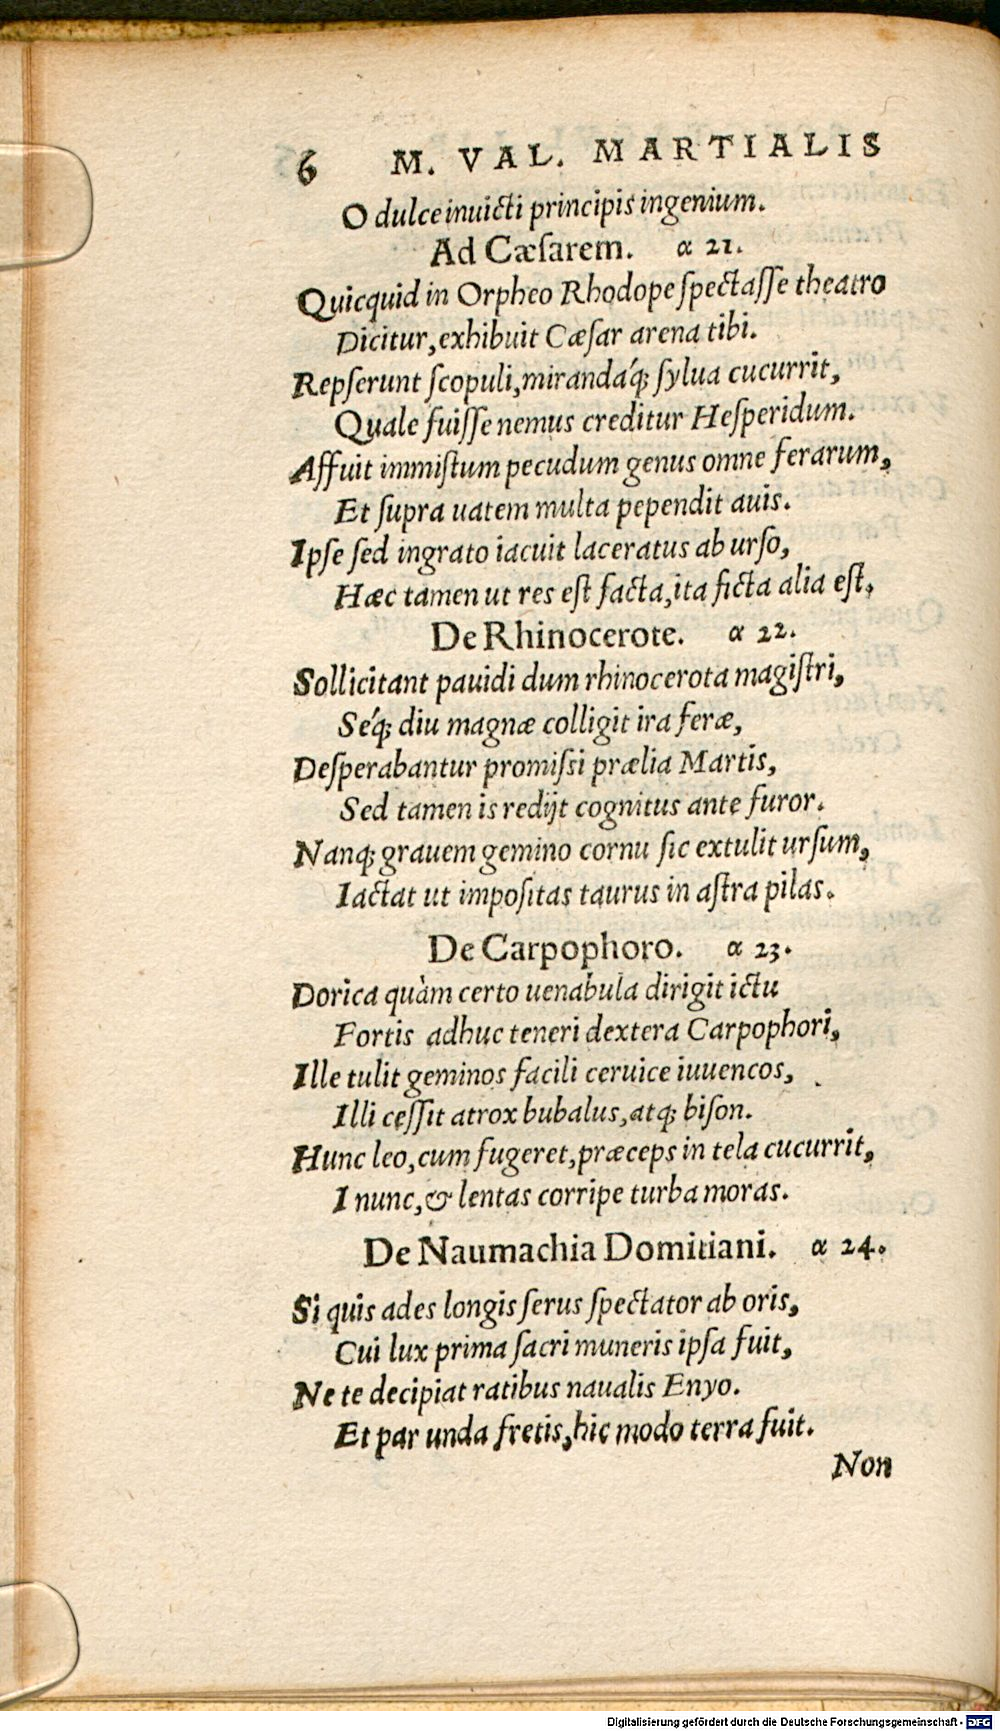 6 M. VAL. MARTIALIS
O dulce inuicti principis ingenium.
Ad Cæſarem. α 21.
Quicquid in Orpheo Rhodope ſpectaſſe theatro
Dicitur, exhibuit Cæſar arena tibi.
Repſerunt ſcopuli, mirandáq; ſylua cucurrit,
Quale fuiſſe nemus creditur Heſperidum.
Affuit immiſtum pecudum genus omne ferarum,
Et ſupra uatem multa pependit auis.
Ipſe ſed ingrato iacuit laceratus ab urſo,
Hæc tamen ut res eſt facta, ita ficta alia eſt.
De Rhinocerote. α 22.
Sollicitant pauidi dum rhinocerota magiſtri,
Seq́; diu magnæ colligit ira feræ,
Deſperabantur promiſsi prælia Martis,
Sed tamen is redijt cognitus ante furor.
Nanq; grauem gemino cornu ſic extulit urſum,
Iactat ut impoſitas taurus in aſtra pilas.
De Carpophoro. α 23.
Dorica quàm certo uenabula dirigit ictu
Fortis adhuc teneri dextera Carpophori,
Ille tulit geminos facili ceruice iuuencos,
Illi ceſſit atrox bubalus, atq; biſon.
Hunc leo, cum fugeret, præceps in tela cucurrit,
I nunc, & lentas corripe turba moras.
De Naumachia Domitiani. α 24.
Si quis ades longis ſerus ſpectator ab oris,
Cui lux prima ſacri muneris ipſa fuit,
Ne te decipiat ratibus naualis Enyo.
Et par unda fretis, hic modo terra fuit.
Non
Digitalisierung gefördert durch die Deutsche Forschungsgemeinschaft - DFG